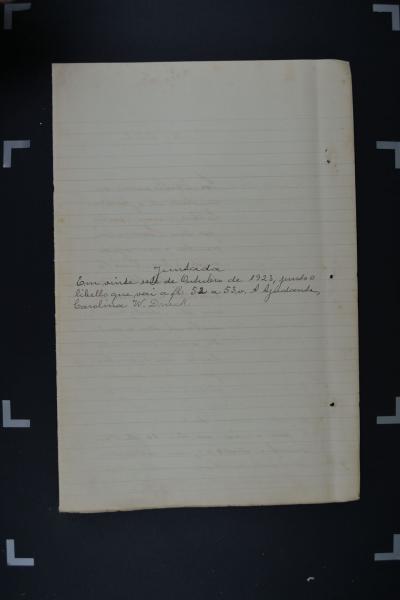 Juntada
Em vinte sete de Outubro de 1923, junto o
libello que vai a fl. 52 a 53v. A Ajudante,
Carolina W. Druck.